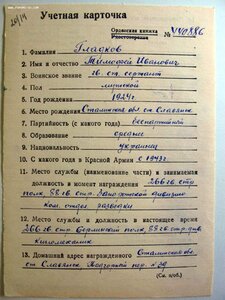 26/14
Учетная карточка
Орденская книжка
Удостоверения № V440886
1. Фамилия Гладков
2. Имя и отчество Тимофей Иванович
3. Воинское звание гв. ст. сержант
4. Пол мужской
5. Год рождения 1924 г.
6. Место рождения Сталинская обл ст. Славянск
7. Партийность (с какого года) беспартийный
8. Образование среднее
9. Национальность украинец
10. С какого года в Красной Армии с 1943 г.
11. Место службы (наименование части) и занимаемая
должность к моменту награждения 266 гв. стр
полк, 88 гв. стр. дивизия
ком. отдел. разведки
12. Место службы и должность в настоящее время
266 гв. стр. полк, 88 гв. стр. див
киномеханик
13. Домашний адрес награжденного Сталинская об.
ст. Славянск
(См. н/об.)